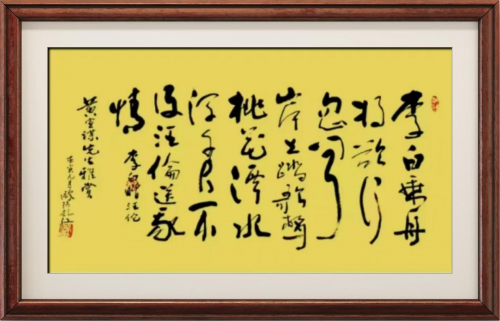 李白乘舟
将欲行
忽闻
岸上踏歌聲
桃花潭水
深千尺不
及汪倫送我
情
李白贈汪伦
先生雅赏